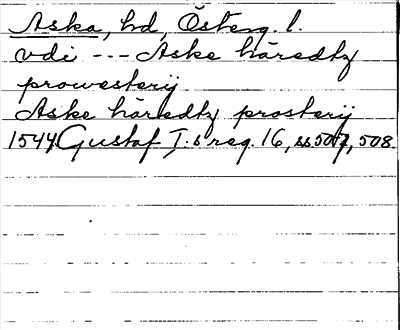 Aska, hd, Österg. l.
vdi --- Aske häredtz
prowesterij
Aske häredtz prosterij
1544 Gustaf I:s reg. 16, ss. 507, 508.